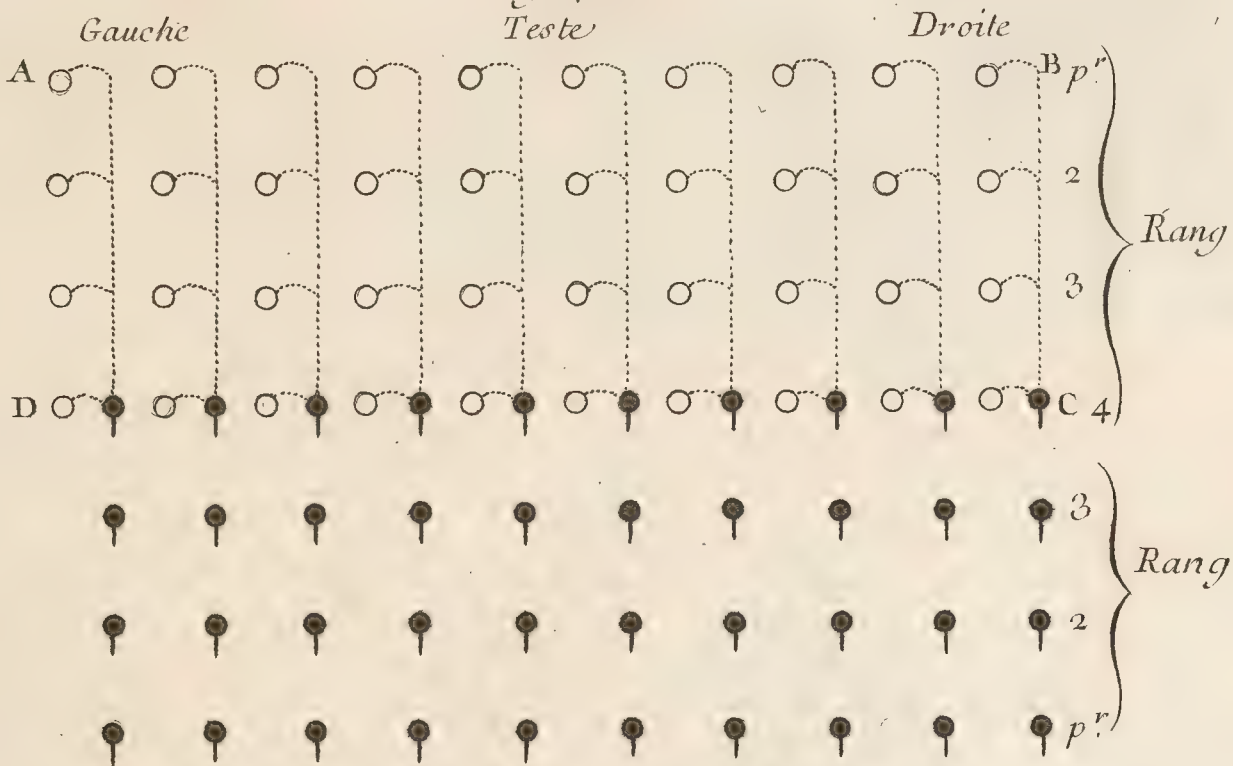 Gauche Teste Droite
A B p.r
2
Rang
3
D C 4
3
Rang
2
p.r